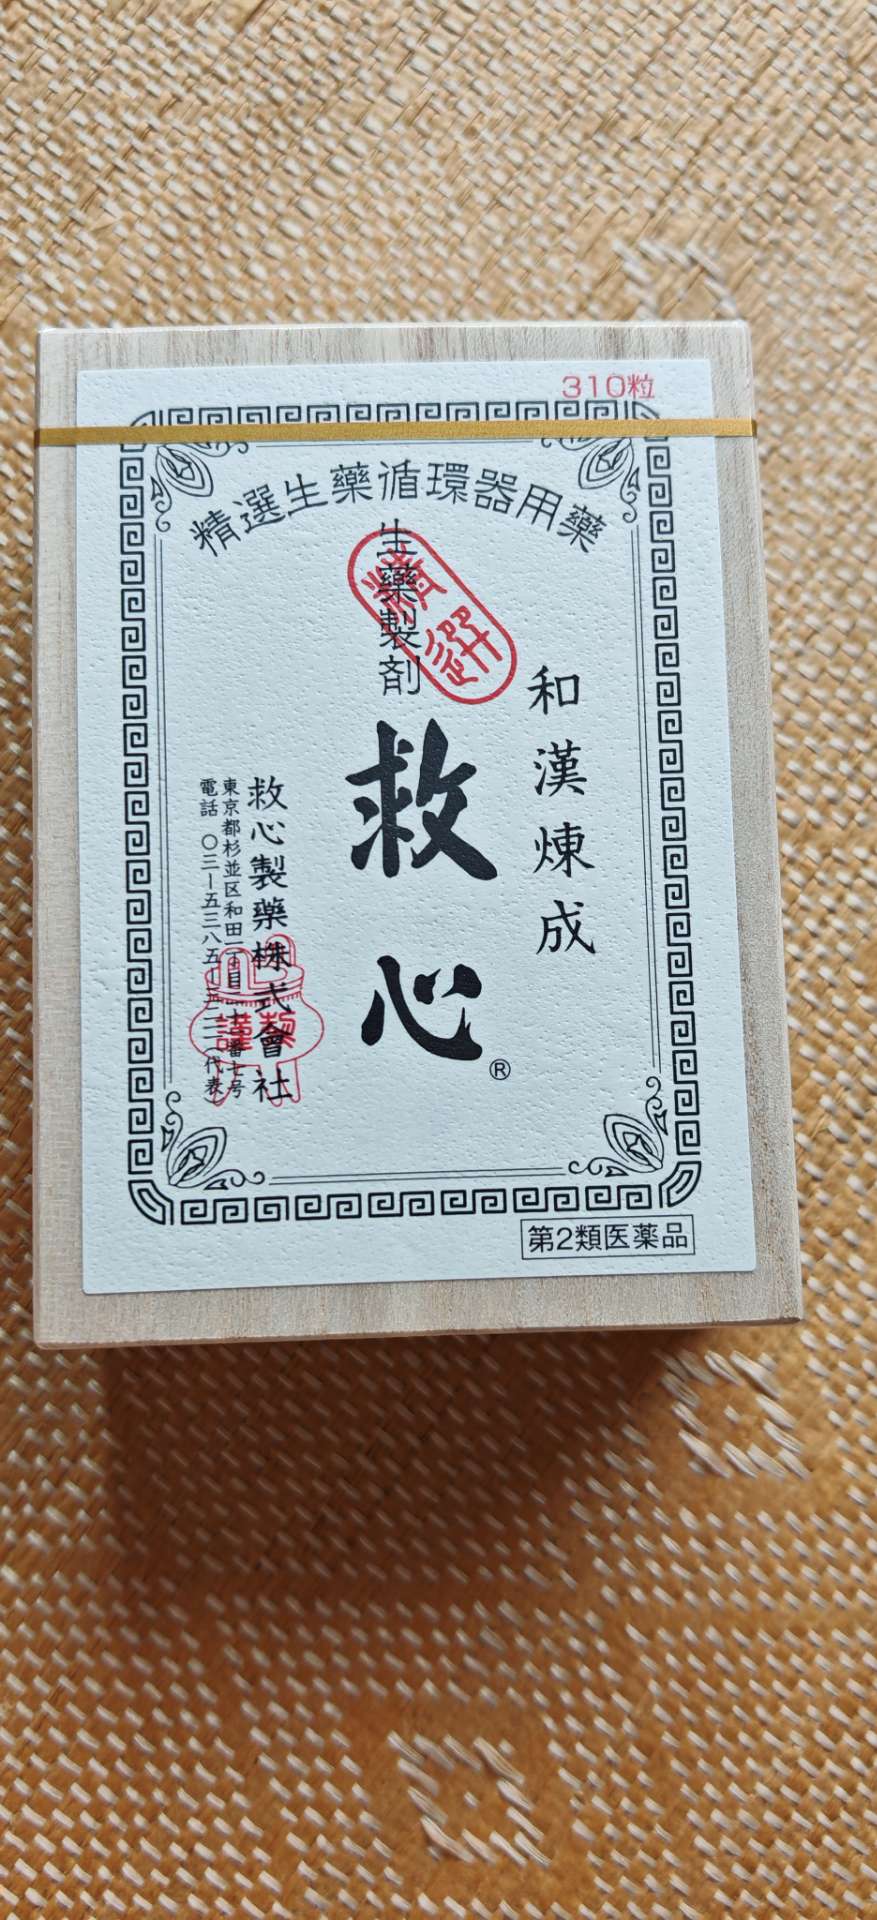 310粒
精選生薬循環器用薬
和漢煉成
生薬製剤
精選
救心®
救心製薬株式會社
東京都杉並区和田一丁目二十一番七号
電話 〇三―五三八五―三二一一(代表)
謹製
第2類医薬品